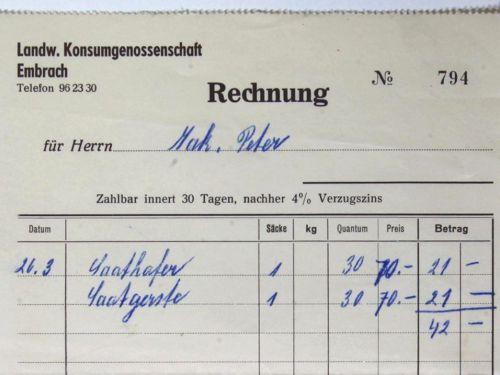 Landw. Konsumgenossenschaft
Embrach
Telefon 96 23 30
№ 794
Rechnung
für Herrn Jak. Peter
Zahlbar innert 30 Tagen, nachher 4% Verzugszins
Datum Säcke kg Quantum Preis Betrag
26.3 Saathafer 1 30 70.- 21 -
Saatgerste 1 30 70.- 21 -
42 -